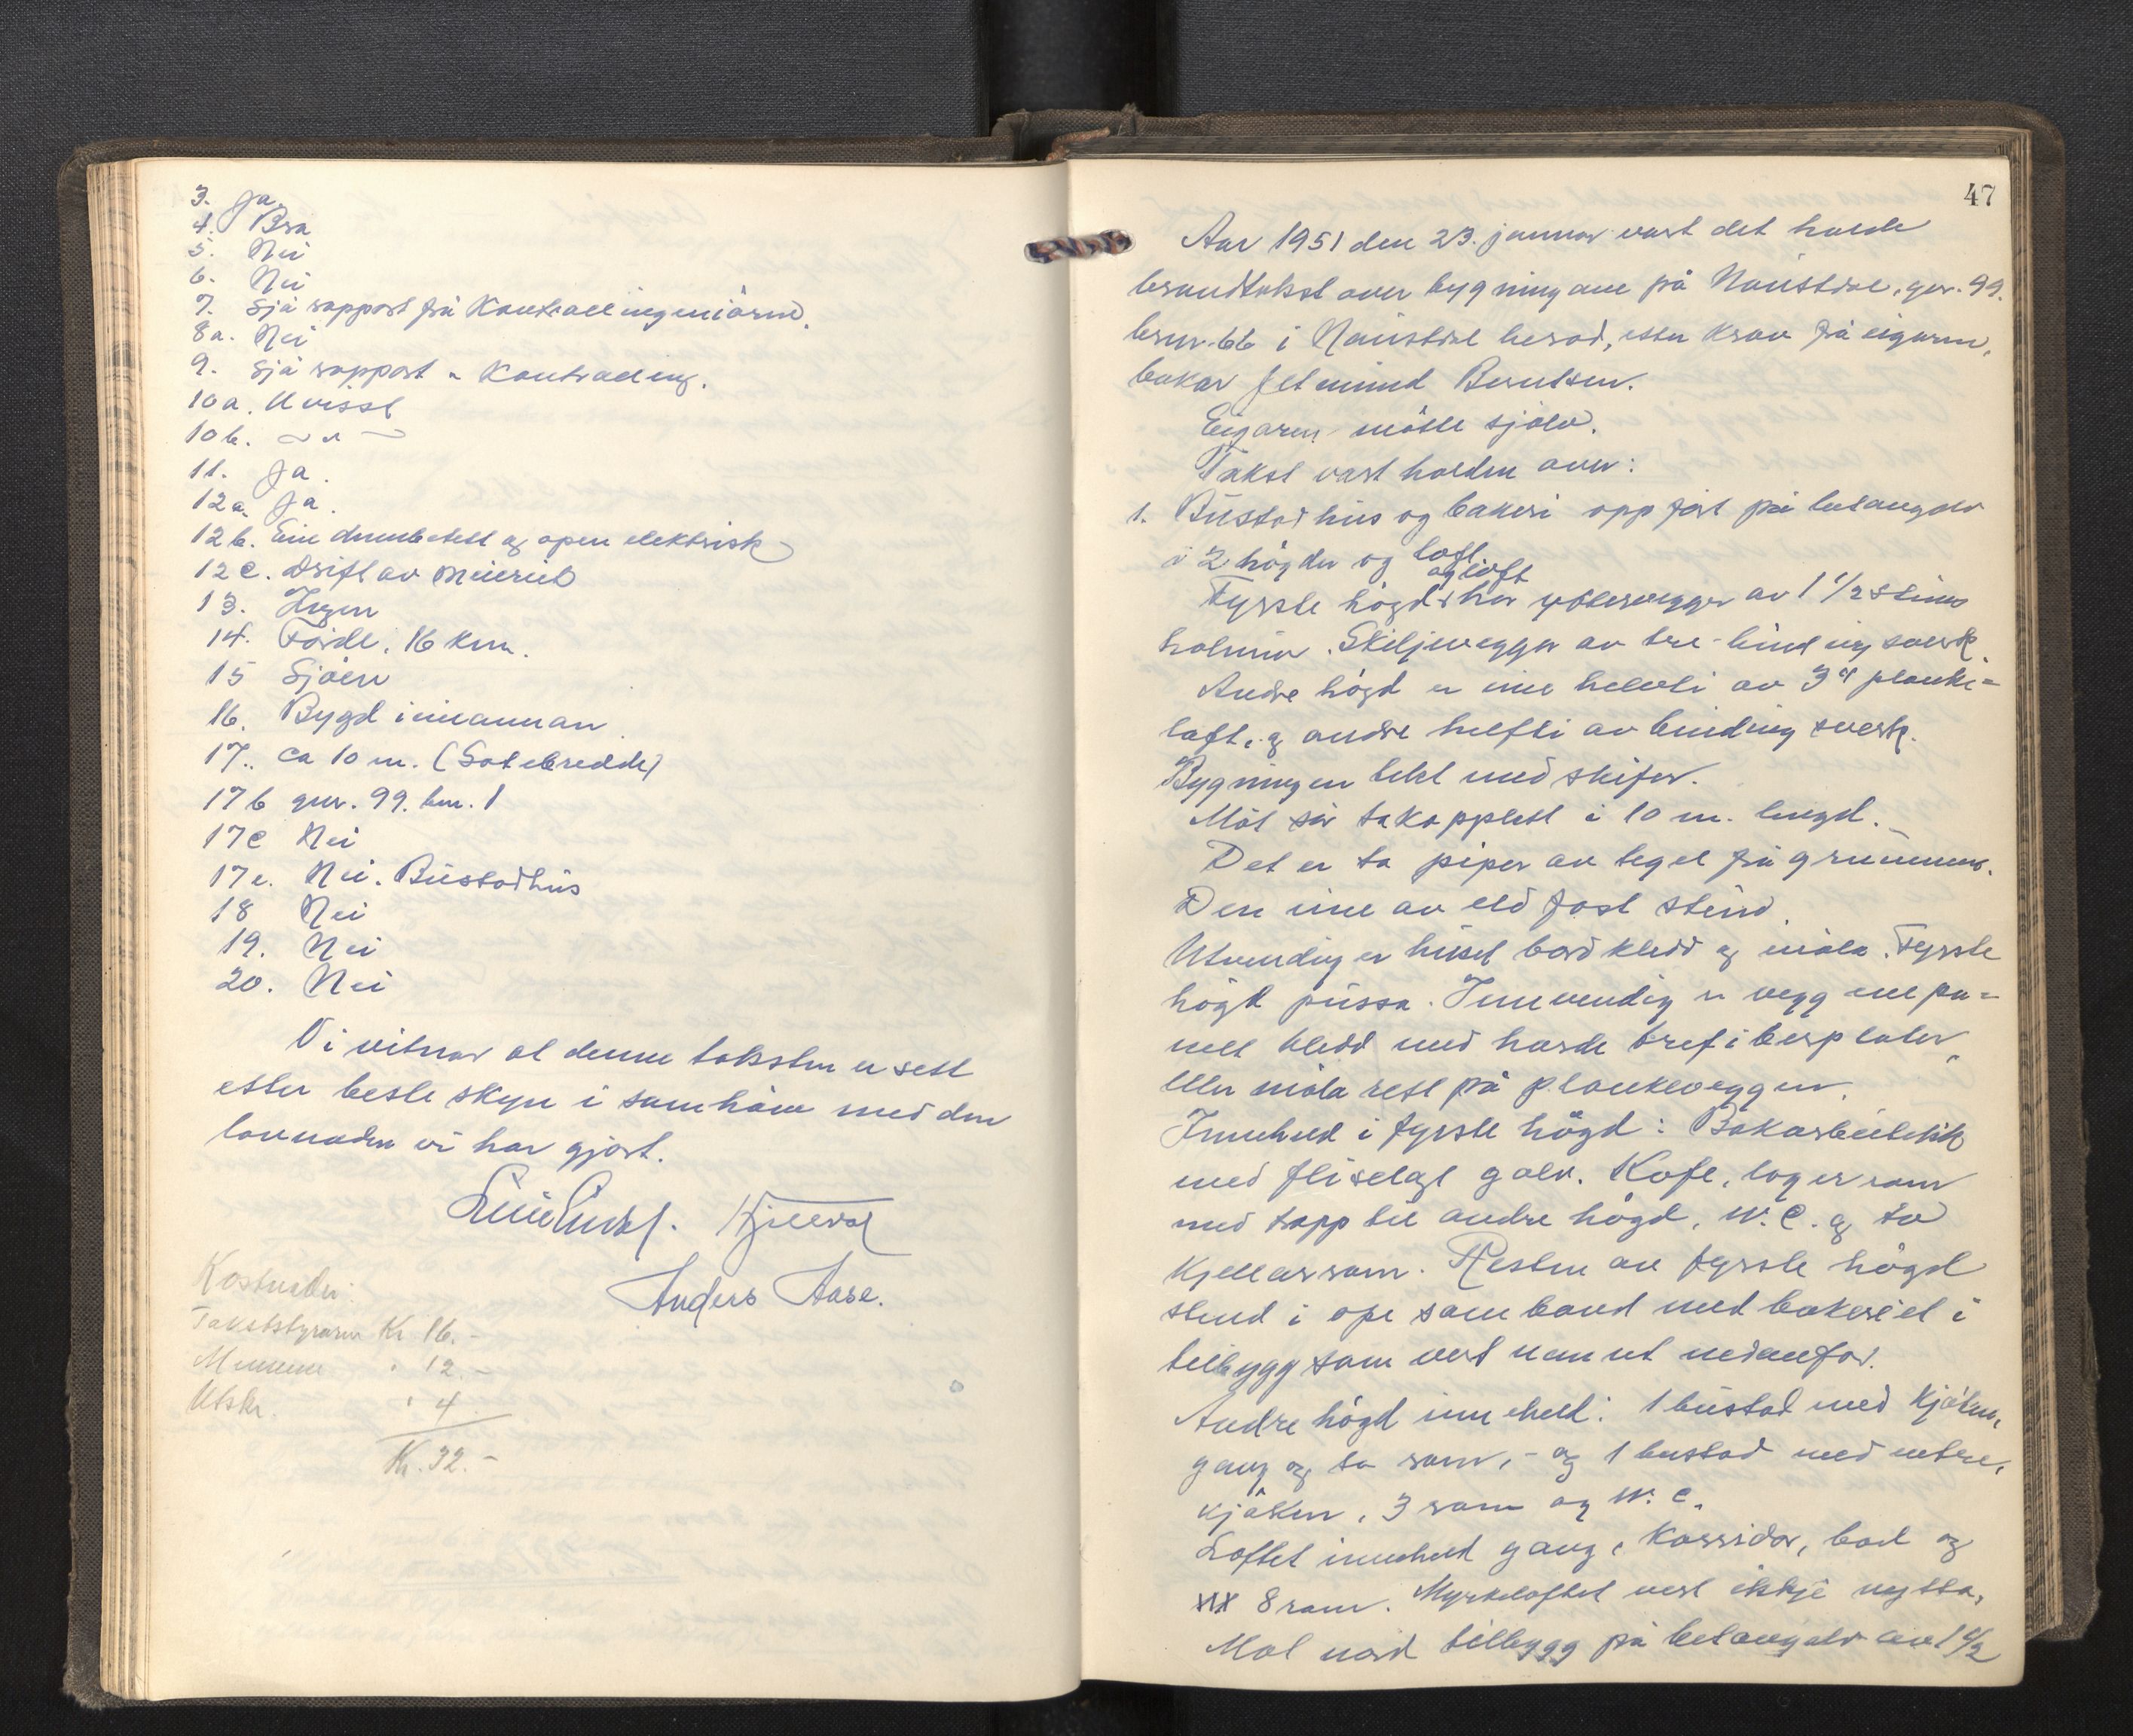 3. Ja.
4. Bra
5. Nei
6. Nei
7. Sjå rapport frå Kontrollingeniören.
8a. Nei
9. Sjå rapport " Kontrolling.
10a. Uvisst
10b. — " —
11. Ja.
12a. Ja.
12b. Ein dunketell og open elektrisk
12c. Drift av Meieriet
13. Ingen
14. Förde, 16 km.
15 Sjöen
16. Bygd i einannan
17. ca 10 m. (Gatebredde)
17b gnr. 99. bnr. 1
17c Nei
17e. Nei. Bustadhus
18 Nei
19. Nei
20. Nei
Vi vitnar at denne taksten er sett
etter beste skyn i samhöve med den
lovnaden vi har gjort.
Kjellevol
Anders Aase.
Kostnader:
Takststyraren Kr. 16.-
Mennene " 12.-
Utskr. " 4
Kr. 32.-
47
Aar 1951 den 23. januar vart det halde
brandtakst over bygningane på Naustdal, gnr. 99.
brnr. 66 i Naustdal herad, etter krav frå eigaren,
bakar Berntsen.
Eigaren mötte sjölv.
Takst vart halden over:
1. Bustadhus og bakeri oppfört på betongolv
i 2 högder og loft.
og loft
Fyrste högd har yttervegger av 1 1/2 steins
holmur. Skiljevegger av tre-bindingsverk.
Andre högd er eine helvti av 3" planke-
laft, og andre helfti av bindingsverk.
Bygningen tekt med skifer.
Möt sör takopplett i 10 m. lengd.
Det er to piper av tegel frå grunnen.
Den eine av eldfast stein.
Utvendig er huset bordkledd og måla. Fyrste
högd pussa. Innvendig er veggene pa-
nel kledd med harde trefiberplater
eller måla rett på plankeveggen.
Inneheld i fyrste högd: Bakarbutikk
med fliselagt golv. Kafe, lagerrom
med trapp til andre högd, W.C. og to
kjellarrom. Resten av fyrste högd
stend i ope samband med bakeriet i
tilbygg som vert nemnt nedanfor.
Andre högd inneheld: 1 bustad med kjöken,
gang og to rom, - og 1 bustad med entre,
kjöken, 3 rom og W.C.
Loftet inneheld gang, korridor, bad og
8 rom. Myrkeloftet vert ikkje nytta.
Mot nord tilbygg på betongolv av 1 1/2